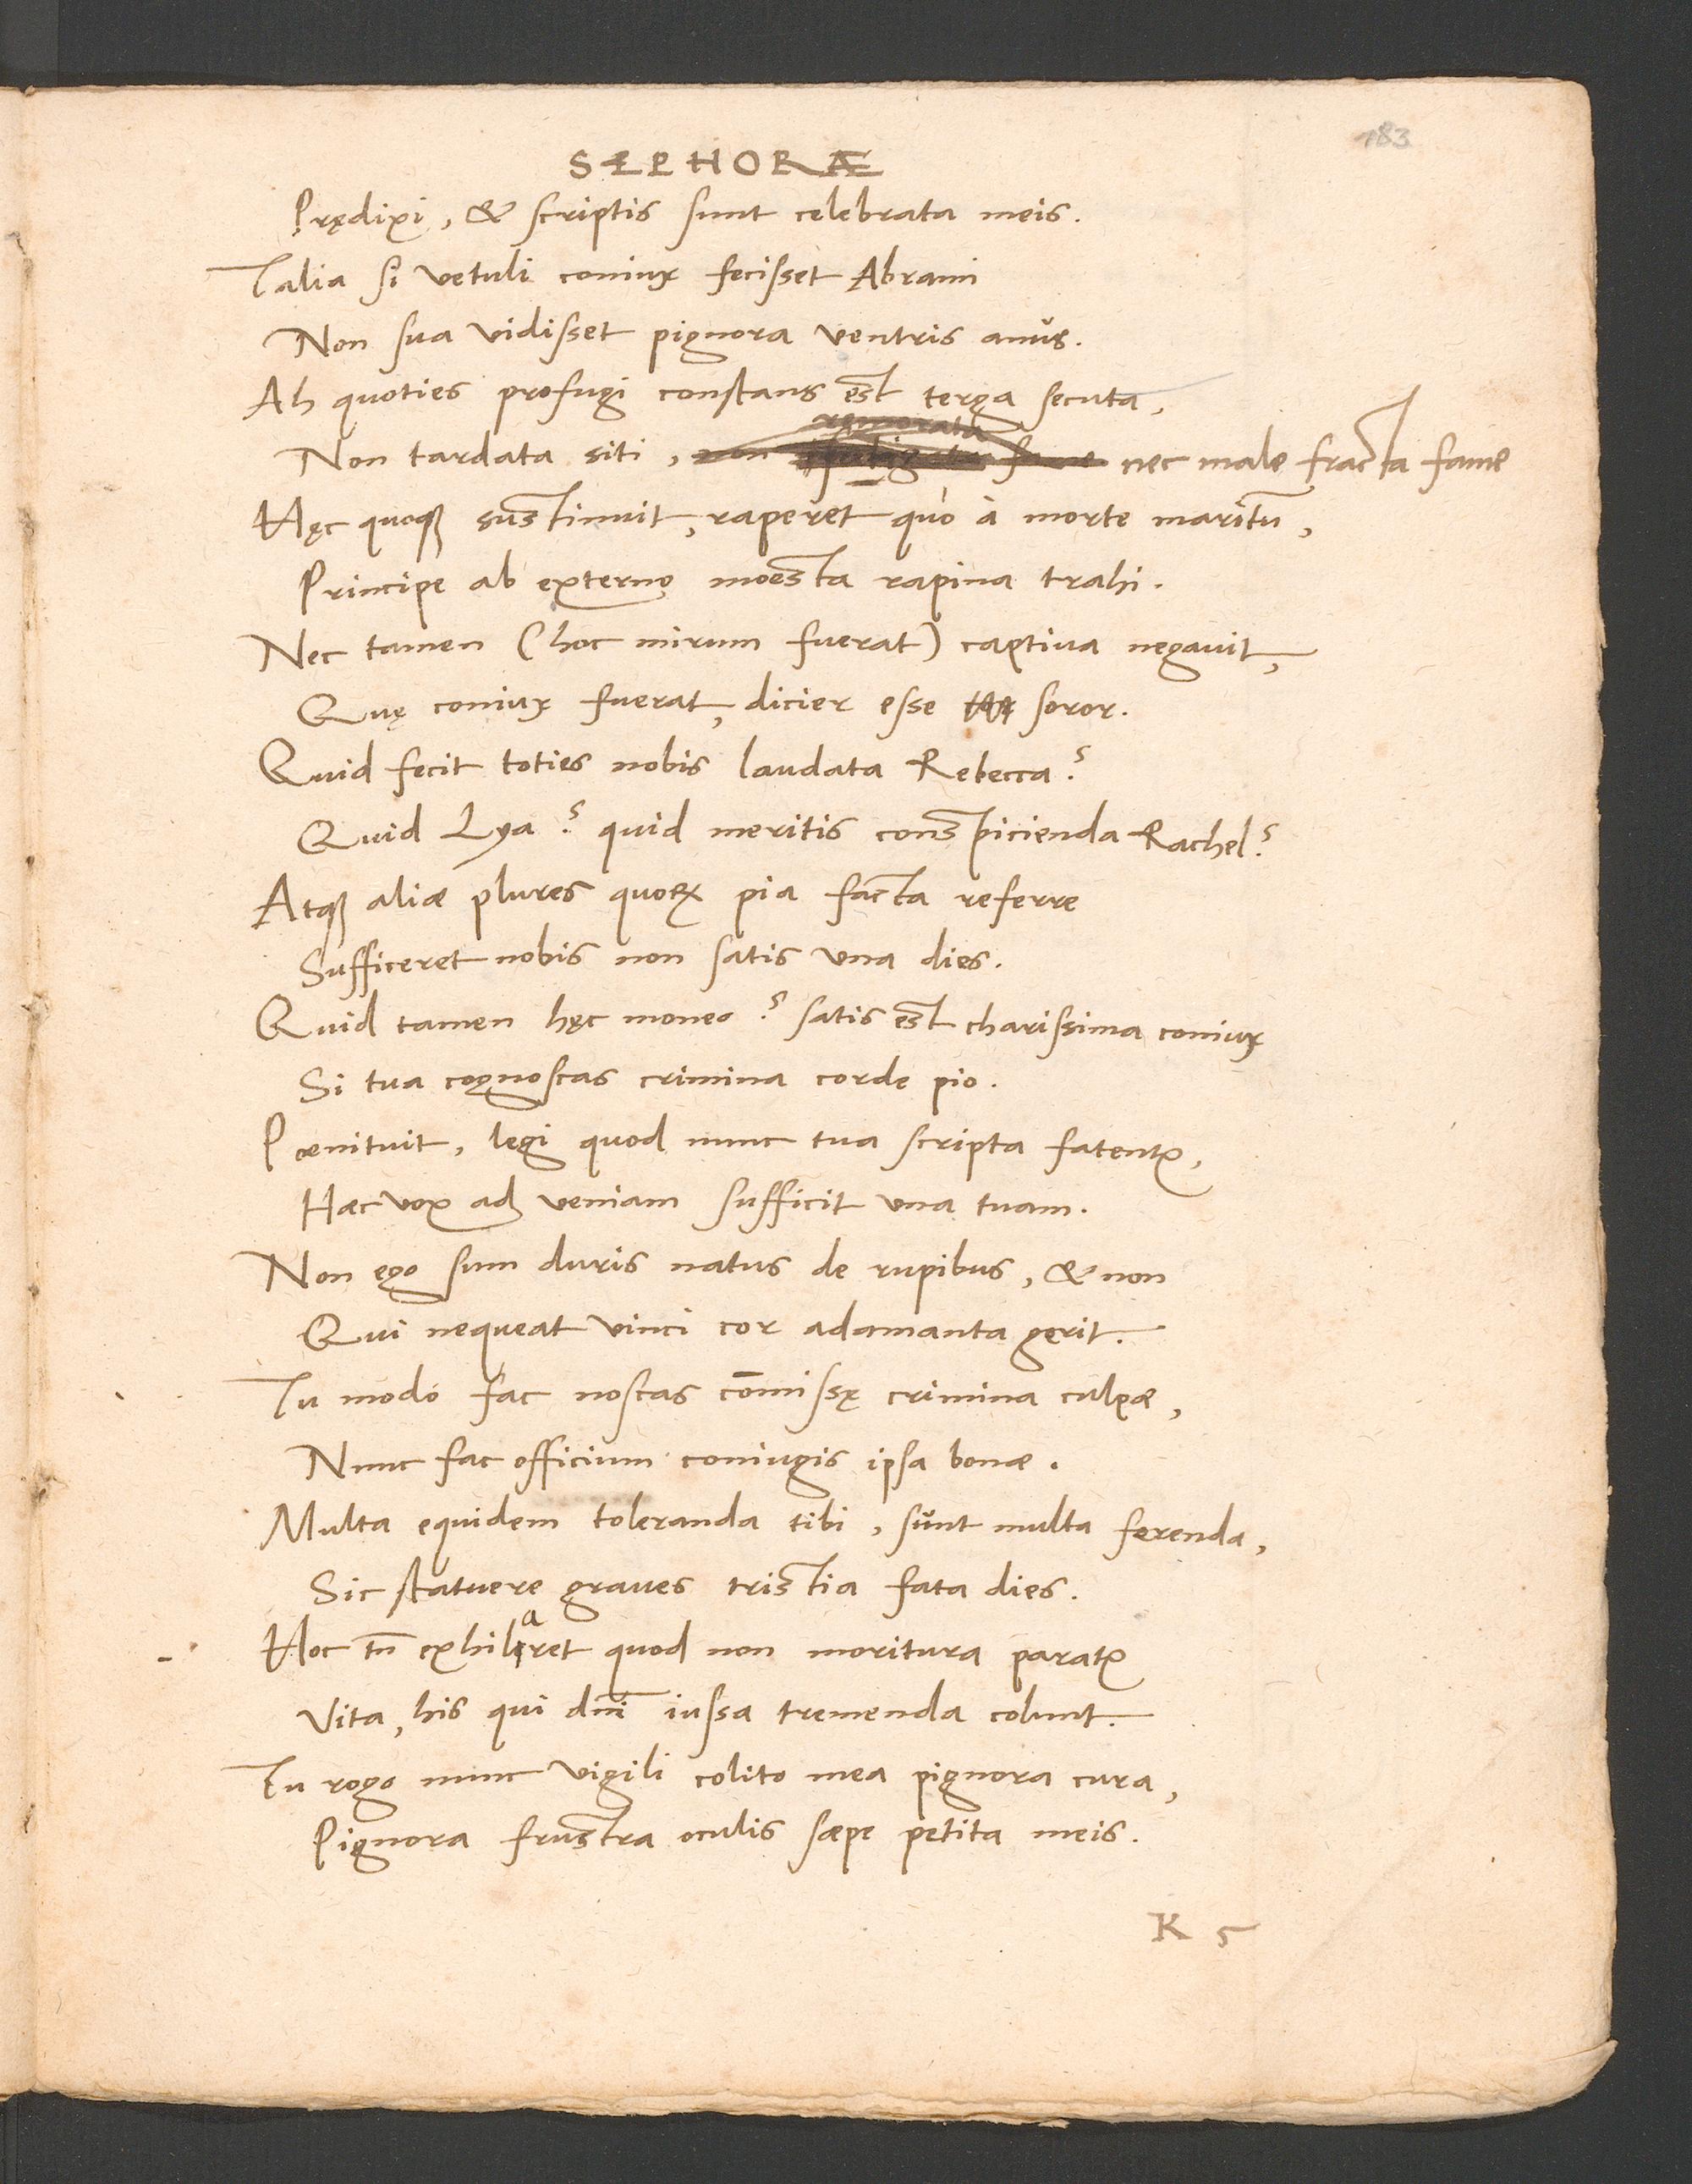 183
SEPHORÆ
Prędixi, & scriptis sunt celebrata meis.
Talia si vetuli coniux fecisset Abrami
Non sua vidisset pignora ventris anus.
Ah quoties profugi constans est terga secuta,
remorata
Non tardata siti, non fame nec male fracta fame
Hęc quoqꝫ sustinuit, raperet quò à morte maritū,
Principe ab externo moesta rapina trahi.
Nec tamen (hoc mirum fuerat) captiva negavit,
Quę coniux fuerat, dicier esse soror.
Quid fecit toties nobis laudata Rebecca?
Quid Lya? quid meritis conspicienda Rachel?
Atqꝫ aliæ plures quoꝝ pia facta referre
Sufficeret nobis non satis una dies.
Quid tamen hęc moneo? satis est charissima coniux
Si tua cognoscas crimina corde pio.
Pœnituit, legi quod nunc tua scripta fatentꝛ,
Hæc vox ad veniam sufficit una tuam.
Non ego sum duris natus de rupibus, & non
Qui nequeat vinci cor adamanta gerit.
Tu modò fac noscas cōmissę crimina culpæ,
Nunc fac officium coniugis ipsa bonæ.
Multa equidem toleranda tibi, sunt multa ferenda,
Sic statuere graves tristia fata dies.
a
Hoc tn̄ exhilaret quod non moritura paratꝛ
Vita, his qui dn̄i iussa tremenda colunt.
Tu rogo nunc vigili colito mea pignora cura,
Pignora frustra oculis sæpe petita meis.
K 5